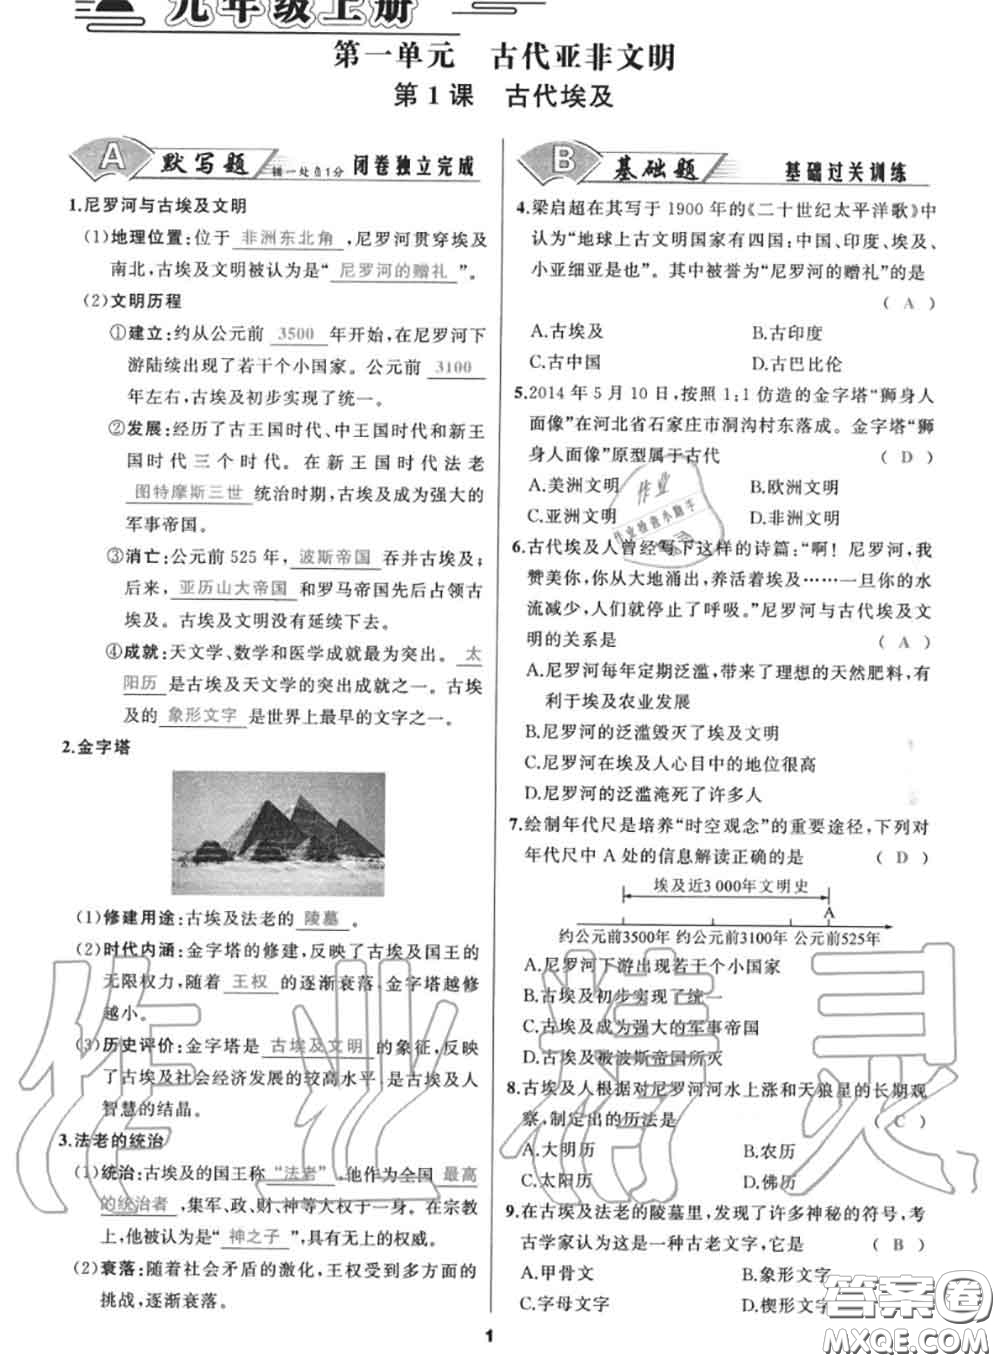 九年级上册
第一单元　古代亚非文明
第1课　古代埃及
A 默写题 错一处扣1分 闭卷独立完成
1.尼罗河与古埃及文明
(1)地理位置:位于 非洲东北角 ,尼罗河贯穿埃及
南北,古埃及文明被认为是“ 尼罗河的赠礼 ”。
(2)文明历程
①建立:约从公元前 3500 年开始,在尼罗河下
游陆续出现了若干个小国家。公元前 3100
年左右,古埃及初步实现了统一。
②发展:经历了古王国时代、中王国时代和新王
国时代三个时代。在新王国时代法老
图特摩斯三世 统治时期,古埃及成为强大的
军事帝国。
③消亡:公元前 525 年, 波斯帝国 吞并古埃及;
后来, 亚历山大帝国 和罗马帝国先后占领古
埃及。古埃及文明没有延续下去。
④成就:天文学、数学和医学成就最为突出。 太
阳历 是古埃及天文学的突出成就之一。古埃
及的 象形文字 是世界上最早的文字之一。
2.金字塔
(1)修建用途:古埃及法老的 陵墓 。
(2)时代内涵:金字塔的修建,反映了古埃及国王的
无限权力,随着 王权 的逐渐衰落,金字塔越修
越小。
(3)历史评价:金字塔是 古埃及文明 的象征,反映
了古埃及社会经济发展的较高水平,是古埃及人
智慧的结晶。
3.法老的统治
(1)统治:古埃及的国王称 “法老” ,他作为全国 最高
的统治者 ,集军、政、财、神等大权于一身。在宗教
上,他被认为是“ 神之子 ”,具有无上的权威。
(2)衰落:随着社会矛盾的激化,王权受到多方面的
挑战,逐渐衰落。
B 基础题 基础过关训练
4.梁启超在其写于 1900 年的《二十世纪太平洋歌》中
认为“地球上古文明国家有四国:中国、印度、埃及、
小亚细亚是也”。其中被誉为“尼罗河的赠礼”的是
( A )
A.古埃及 B.古印度
C.古中国 D.古巴比伦
5.2014 年 5 月 10 日,按照 1:1 仿造的金字塔“狮身人
面像”在河北省石家庄市洞沟村东落成。金字塔“狮
身人面像”原型属于古代 ( D )
A.美洲文明 B.欧洲文明
C.亚洲文明 D.非洲文明
6.古代埃及人曾经写下这样的诗篇:“啊! 尼罗河,我
赞美你,你从大地涌出,养活着埃及……一旦你的水
流减少,人们就停止了呼吸。”尼罗河与古代埃及文
明的关系是 ( A )
A.尼罗河每年定期泛滥,带来了理想的天然肥料,有
利于埃及农业发展
B.尼罗河的泛滥毁灭了埃及文明
C.尼罗河在埃及人心目中的地位很高
D.尼罗河的泛滥淹死了许多人
7.绘制年代尺是培养“时空观念”的重要途径,下列对
年代尺中 A 处的信息解读正确的是 ( D )
埃及近3 000年文明史
A
约公元前3500年 约公元前3100年 公元前525年
A.尼罗河下游出现若干个小国家
B.古埃及初步实现了统一
C.古埃及成为强大的军事帝国
D.古埃及被波斯帝国所灭
8.古埃及人根据对尼罗河河水上涨和天狼星的长期观
察,制定出的历法是 ( C )
A.大明历 B.农历
C.太阳历 D.佛历
9.在古埃及法老的陵墓里,发现了许多神秘的符号,考
古学家认为这是一种古老文字,它是 ( B )
A.甲骨文 B.象形文字
C.字母文字 D.楔形文字
1
作业
作业检查小助手
作业精灵
答案圈
MXQE.COM